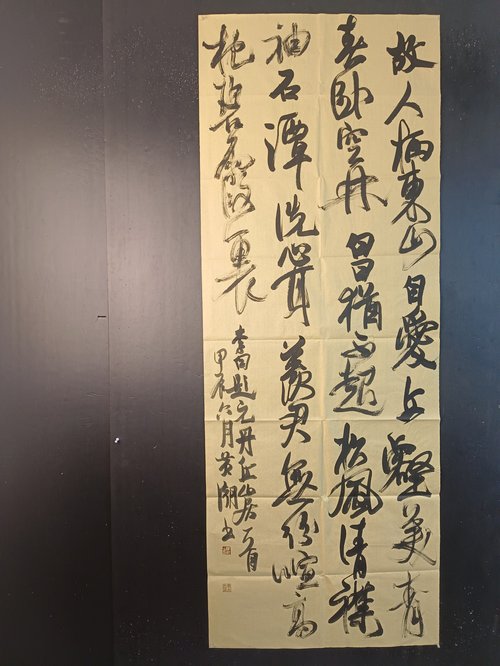 故人栖東山自愛丘壑美青
春卧空林白日猶不起松風清襟
袖石潭洗心耳羨君無紛喧高
枕碧霞裏
李白題元丹丘山居一首
甲辰六月黄湖书